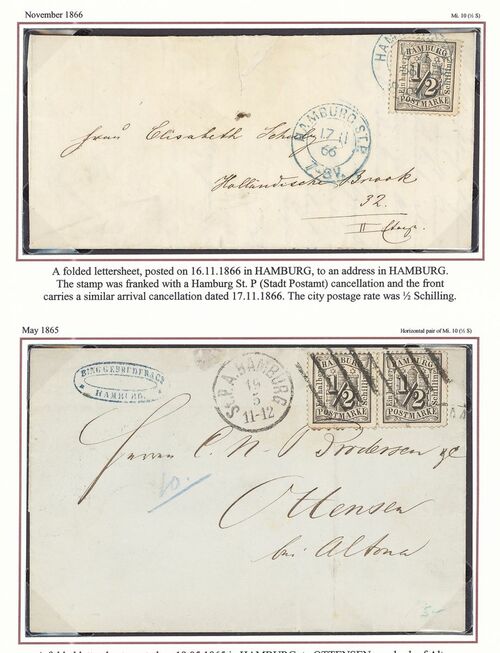 November 1866
Mi. 10 (½ S)
HAMBURG
Ein halber
1/2
Schilling
POSTMARKE
HAMBURG ST.P.
17 11
66
7-8V.
Frau Elisabeth
Holländische Brook
32.
II Etage.
A folded lettersheet, posted on 16.11.1866 in HAMBURG, to an address in HAMBURG.
The stamp was franked with a Hamburg St. P (Stadt Postamt) cancellation and the front
carries a similar arrival cancellation dated 17.11.1866. The city postage rate was ½ Schilling.
May 1865
Horizontal pair of Mi. 10 (½ S)
HAMBURG.
S.P.A. HAMBURG
19
5
11-12
HAMBURG
1/2
Schilling
POSTMARKE
HAMBURG
1/2
Schilling
POSTMARKE
Herren C. N. Brodersen
Ottensen
bei Altona